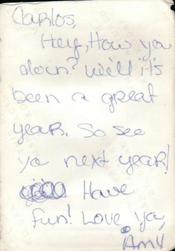 Carlos,
Hey, How you
doin? Well it's
been a great
year. So see
ya next year!
Have
fun! Love ya,
Amy